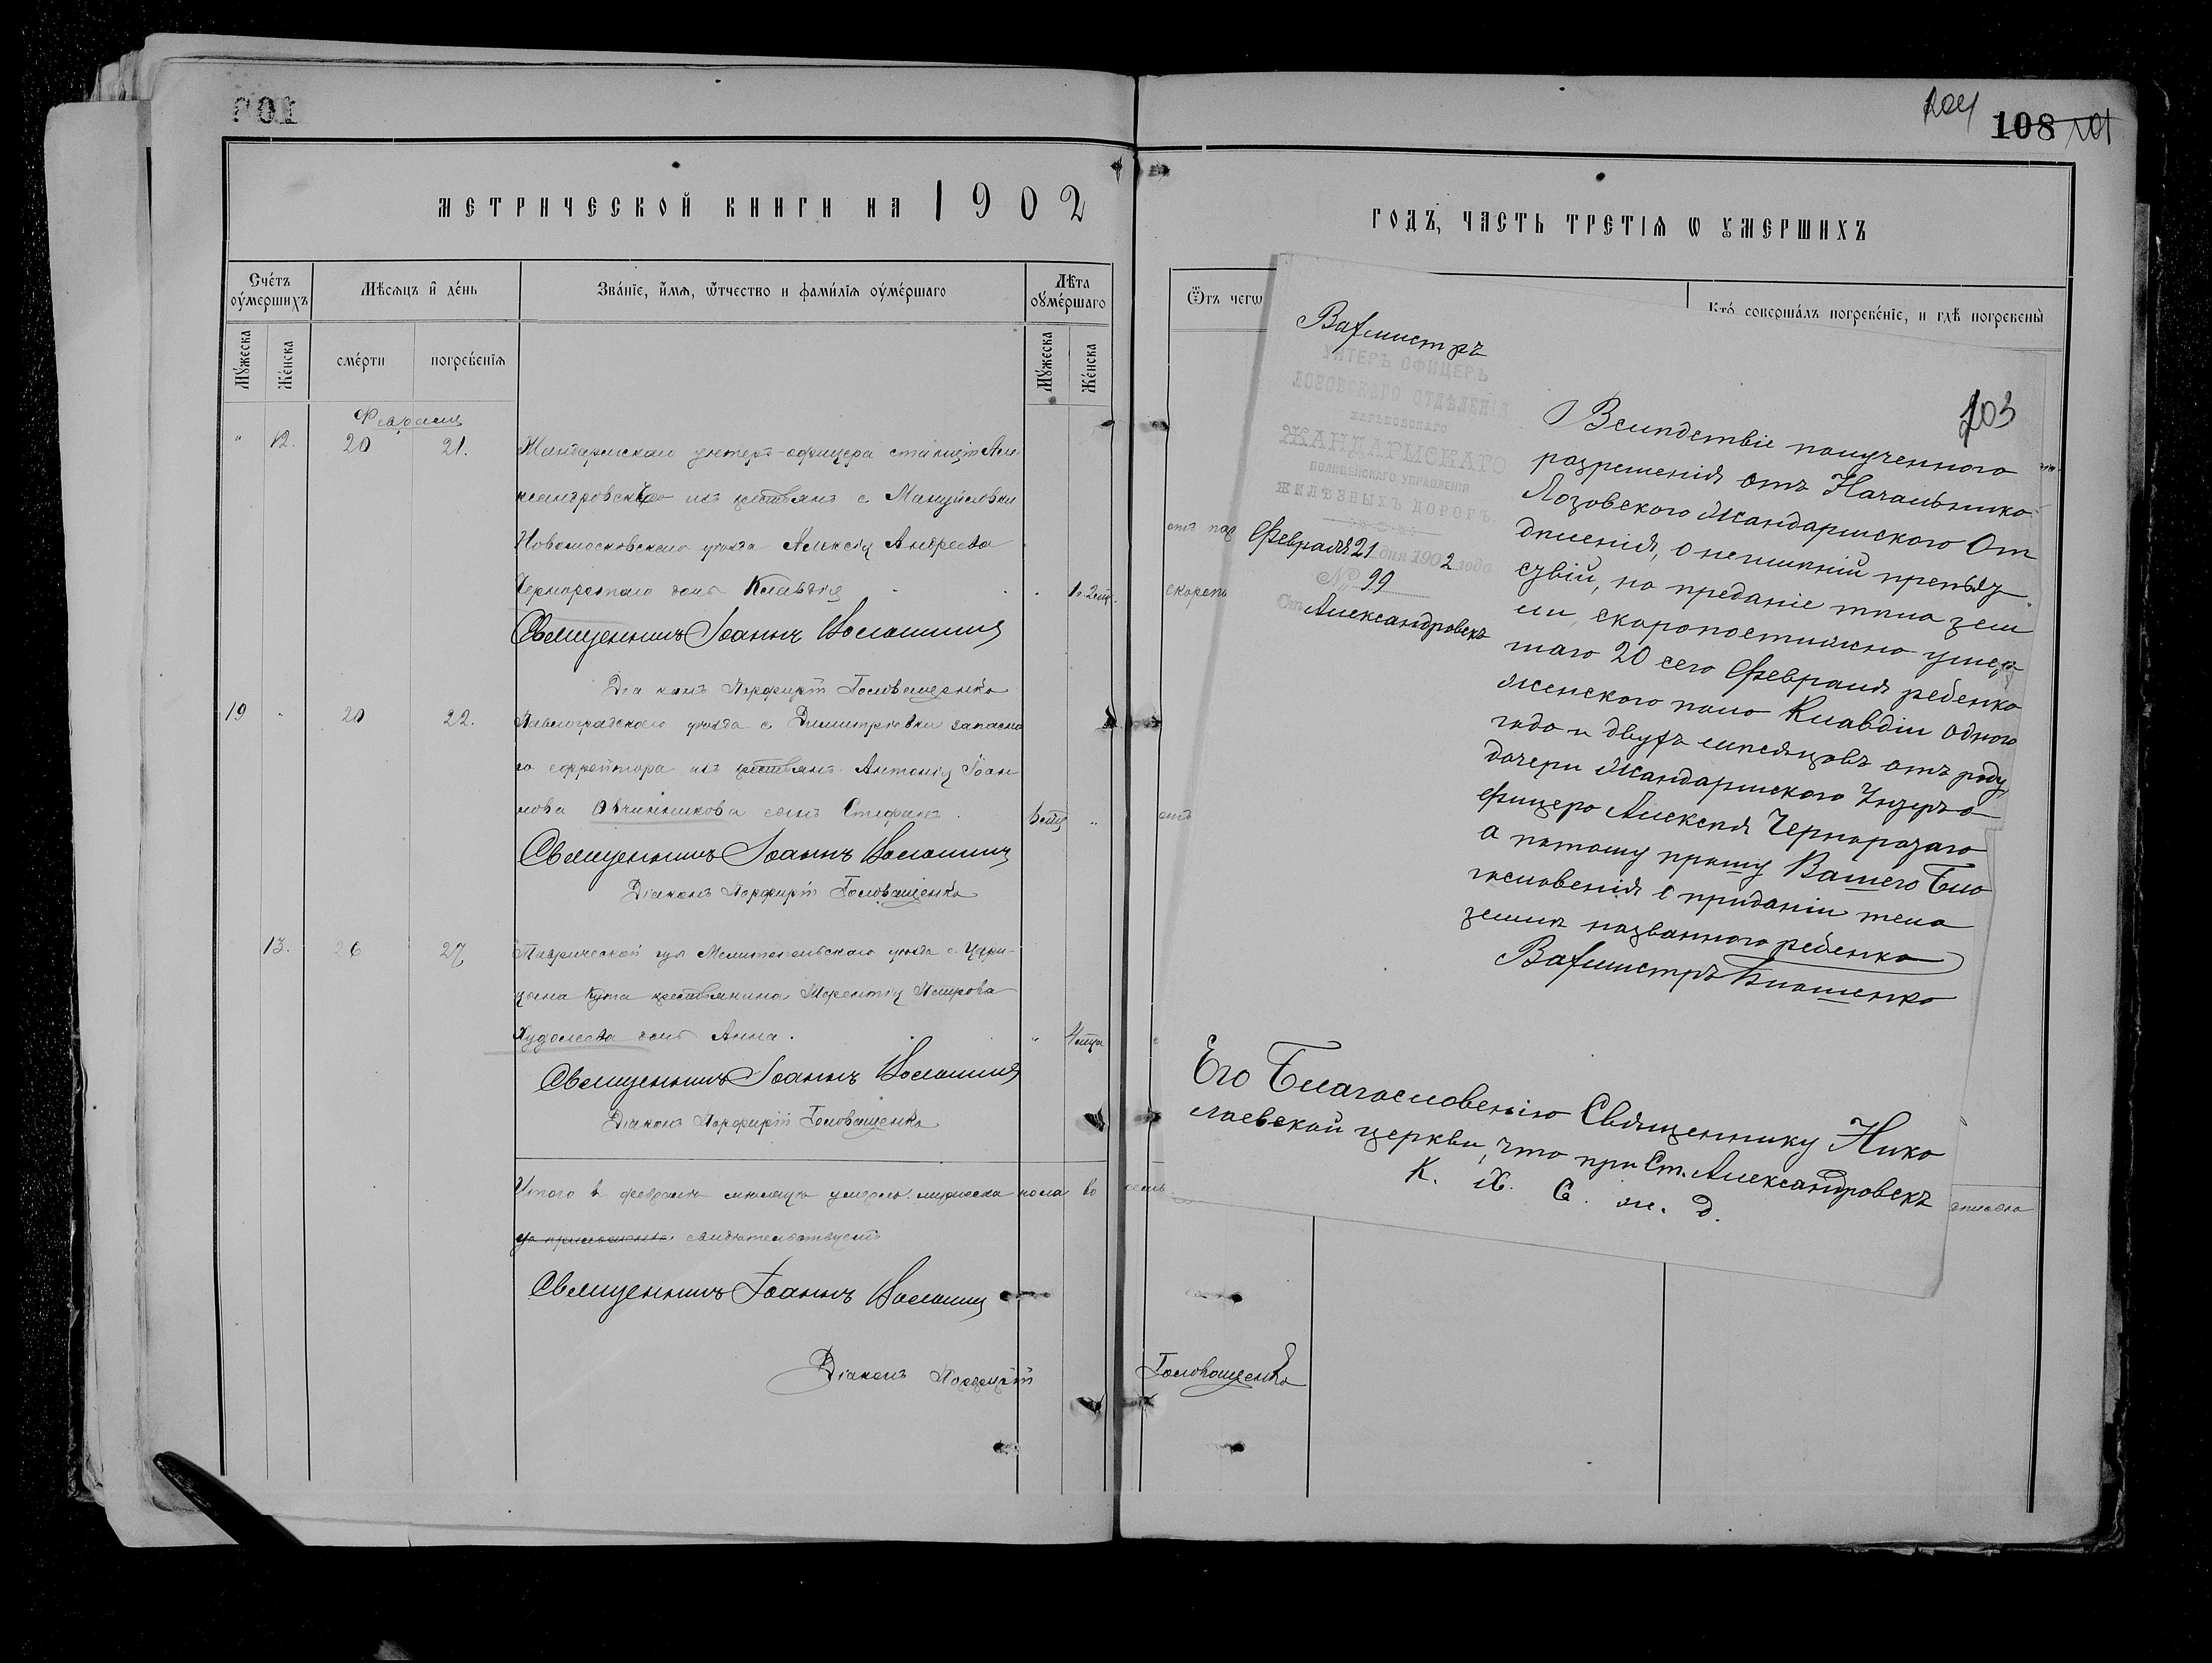 801
МЕТРИЧЕСКОЙ КНИГИ НА 1902
Счетъ умершихъ
Мѣсяцъ и день
Званіе, имя, отчество и фамилія умершаго
Лѣта умершаго
Мужеска
Женска
смерти
погребенія
Мужеска
Женска
Февраля
" 12. 20 21. Жандармскаго унтеръ-офицера станціи Але
ксандровскъ изъ крестьянъ с Мануйловки
Новомосковскаго уѣзда Алексія Андреева
Черноротаго дочь Клавдія 1г. 2 мѣс.
Священникъ Іоаннъ Волошинъ
Діаконъ Порфирій Головащенко
19 " 20 22. Павлоградскаго уѣзда с Димитріевки запасна
го ефрейтора изъ крестьянъ Антонія Іоан
нова Овчинникова сынъ Стефанъ. 6 мѣс "
Священникъ Іоаннъ Волошинъ
Діаконъ Порфирій Головащенко
13. 26 27 Таврической губ Мелитопольскаго уѣзда с. Цари
цына Кута крестьянина Терентія Петрова
Худолеева дочь Анна. " 4 мѣсца
Священникъ Іоаннъ Волошинъ
Діаконъ Порфирій Головащенко
Итого въ февралѣ мѣсяцѣ умерло мужеска пола во
свидѣтельствуетъ
Священникъ Іоаннъ Волошинъ
Діаконъ Порфирій
Головащенко
104
108 101
ГОДЪ, ЧАСТЬ ТРЕТІЯ Ѡ УМЕРШИХЪ
Отъ чегѡ
Кто совершалъ погребеніе, и гдѣ погребены
отъ
скороп
отъ
Вахмистръ
УНТЕРЪ ОФИЦЕРЪ
ЛОЗОВСКАГО ОТДѢЛЕНІЯ
ХАРЬКОВСКАГО
ЖАНДАРМСКАГО
ПОЛИЦЕЙСКАГО УПРАВЛЕНІЯ
ЖЕЛѢЗНЫХЪ ДОРОГЪ.
Февраля 21 дня 1902 года
№ 99
Ст. Александровскъ
103
Вслѣдствіе полученного
разрешенія отъ Начальнико
Лозовского Жандармского От
дѣленія, о неимѣніи препьяз
сзвій, на преданіе тѣла зем
ли, скоропостижно умер
шаго 20 сего Февраля ребенко
женского поло Клавдіи одного
года и двухъ мѣсяцовъ отъ роду,
дочери Жандармского Унтеръ о
фицеро Алексѣя Чернорозаго
а потому прошу Вашего Бла
гословенія о приданіи тела
землѣ названного ребенко
Вахмистръ
Его Благословенію Священнику Нико
лаевской церкви, что при Ст. Александровскъ
К. Х. С. ж. д.